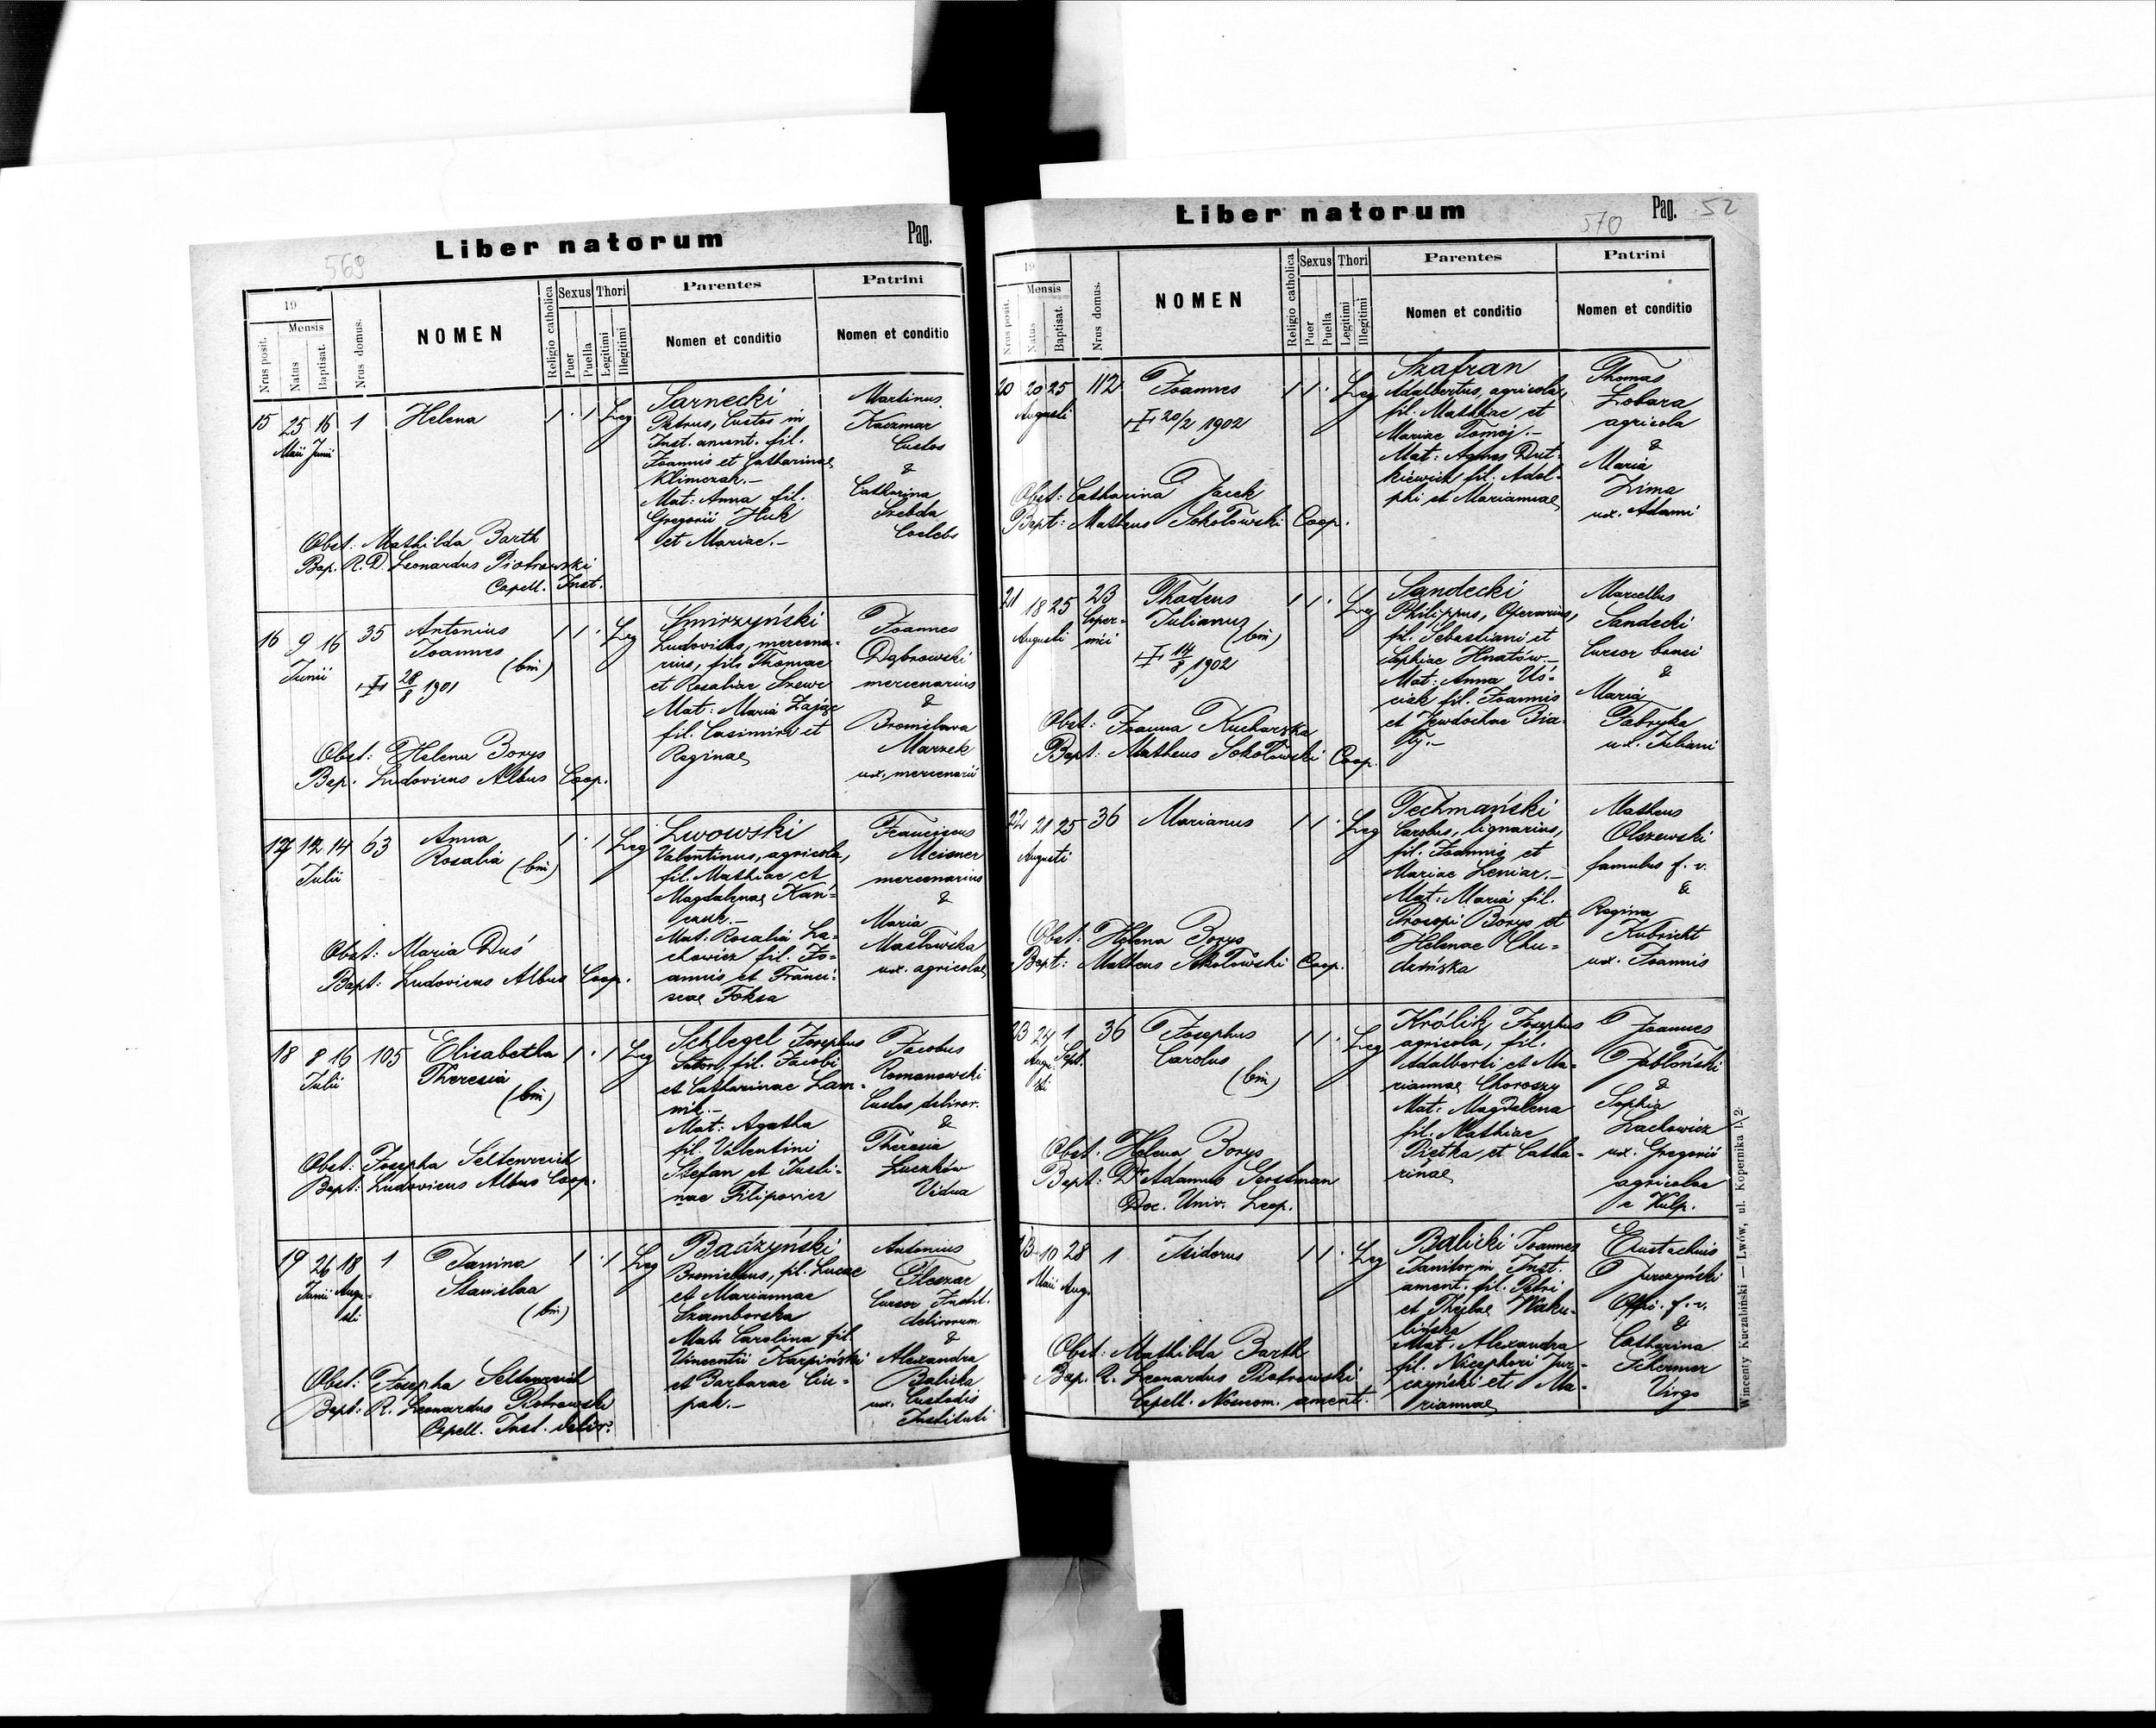 569
Liber natorum
Pag.
19
Mensis
Nrus posit.
Natus
Baptisat.
Nrus domus.
NOMEN
Religio catholica
Sexus
Puer
Puella
Thori
Legitimi
Illegitimi
Parentes
Nomen et conditio
Patrini
Nomen et conditio
15 25 16 1 Helena 1 . 1 Leg
Maii Junii
Sarnecki
Petrus, Custos in
Inst. ament. fil.
Joannis et Catharinae
Klimczak.-
Mat: Anna fil.
Gregorii Huk
et Mariae.-
Martinus
Kaczmar
Custos
&
Catharina
Szebda
Coelebs
Obst: Mathilda Barth
Bap. R. D. Leonardus Piotrowski
Capell. Inst.
16 9 16 35 Antonius 1 1 . Leg
Junii
Joannes
(bin)
28/8 1901
Smirzyński
Ludovicus, mercena-
rius, fil. Thomae
et Rosaliae Szewc
Mat: Maria Zając
fil. Casimiri et
Reginae
Joannes
Dąbrowski
mercenarius
&
Bronislava
Marzek
ux. mercenarii
Obst: Helena Borys
Bap. Ludovicus Albus Coop.
17 12 14 63 Anna 1 . 1 Leg
Julii
Rosalia (bin)
Lwowski
Valentinus, agricola,
fil. Mathiae et
Magdalenae Kań-
czuk.-
Mat. Rosalia La-
chowicz fil. Jo-
annis et Franci-
scae Foksa
Franciscus
Meisner
mercenarius
&
Maria
Masłowska
ux. agricolae
Obst: Maria Duś
Bapt: Ludovicus Albus Coop.
18 8 16 105 Elisabetha 1 . 1 Leg
Julii
Theresia
(bin)
Schlegel Josephus
Sutor, fil. Jacobi
et Catharinae Lam-
nik.-
Mat: Agatha
fil. Valentini
Stefan et Justi-
nae Filipowicz
Jacobus
Romanowski
Custos deliror.
&
Theresia
Luczków
Vidua
Obst: Josepha Seltenreich
Bapt: Ludovicus Albus Coop.
19 26 18 1 Janina 1 . 1 Leg
Junii Augu-
sti
Stanislaa
(bin)
Badzyński
Bronislaus, fil. Lucae
et Mariannae
Szamborska
Mat. Carolina fil.
Vincentii Karpiński
et Barbarae Ciu-
pak.-
Antonius
Pleszar
Cursor Instit.
delirorum
&
Alexandra
Balicka
ux. Custodis
Instituti
Obst: Josepha Seltenreich
Bapt: R. Leonardus Piotrowski
Capell. Inst. delir.
Liber natorum
570
Pag. 52
19
Mensis
Nrus posit.
Natus
Baptisat.
Nrus domus.
NOMEN
Religio catholica
Sexus
Puer
Puella
Thori
Legitimi
Illegitimi
Parentes
Nomen et conditio
Patrini
Nomen et conditio
20 20 25 112 Joannes 1 1 . Leg
Augusti
20/2 1902
Szafran
Adalbertus, agricola,
fil. Mathiae et
Mariae Tomaj.-
Mat: Agnes Dut-
kiewich fil. Adol-
phi et Mariannae
Thomas
Zobara
agricola
&
Maria
Zima
ux. Adami
Obst: Catharina Jacek
Bapt: Matheus Sokołowski Coop.
21 18 25 23 Thadeus 1 1 . Leg
Augusti
Super-
mci
Julianus
(bin)
14/8 1902
Sandecki
Philippus, Operarius,
fil. Sebastiani et
Sophiae Hnatów.-
Mat: Anna Uś-
ciak fil. Joannis
et Jewdochae Bia-
ły.-
Marcellus
Sandecki
Cursor banci
&
Maria
Fabryka
ux. Juliani
Obst: Joanna Kucharska
Bapt: Matheus Sokołowski Coop.
22 21 25 36 Marianus 1 1 . Leg
Augusti
Techmański
Carolus, lignarius,
fil. Joannis et
Mariae Leniar.-
Mat: Maria fil.
Procopi Borys et
Helenae Chu-
dzińska
Matheus
Olszewski
famulus f. v.
&
Regina
Kubricht
ux. Joannis
Obst: Helena Borys
Bapt: Matheus Sokołowski Coop.
23 24 1 36 Josephus 1 1 . Leg
Augu-
sti
Sept.
Carolus
(bin)
Królik Josephus
agricola, fil.
Adalberti et Ma-
riannae Choroszy
Mat: Magdalena
fil. Mathiae
Piętka et Catha-
rinae
Joannes
Jabłoński
&
Sophia
Lachowicz
ux. Gregorii
agricolae
e Kulp.
Obst. Helena Borys
Bapt: Dr Adamus Gerstman
Doc. Univ. Leop.
10 28 1 Isidorus 1 1 . Leg
Maii Aug.
Balicki Joannes
Janitor in Inst.
ament. fil. Petri
et Theclae Waku-
lińska
Mat. Alexandra
fil. Nicephori Jur-
czyński et Ma-
riannae
Eustachius
Jurczyński
Offi. f. v.
&
Catharina
Schermer
Virgo
Obst: Mathilda Barth
Bap. R. Leonardus Piotrowski
Capell. Nosocom. ament.
Wincenty Kuczabiński — Lwów, ul. Kopernika l. 2.